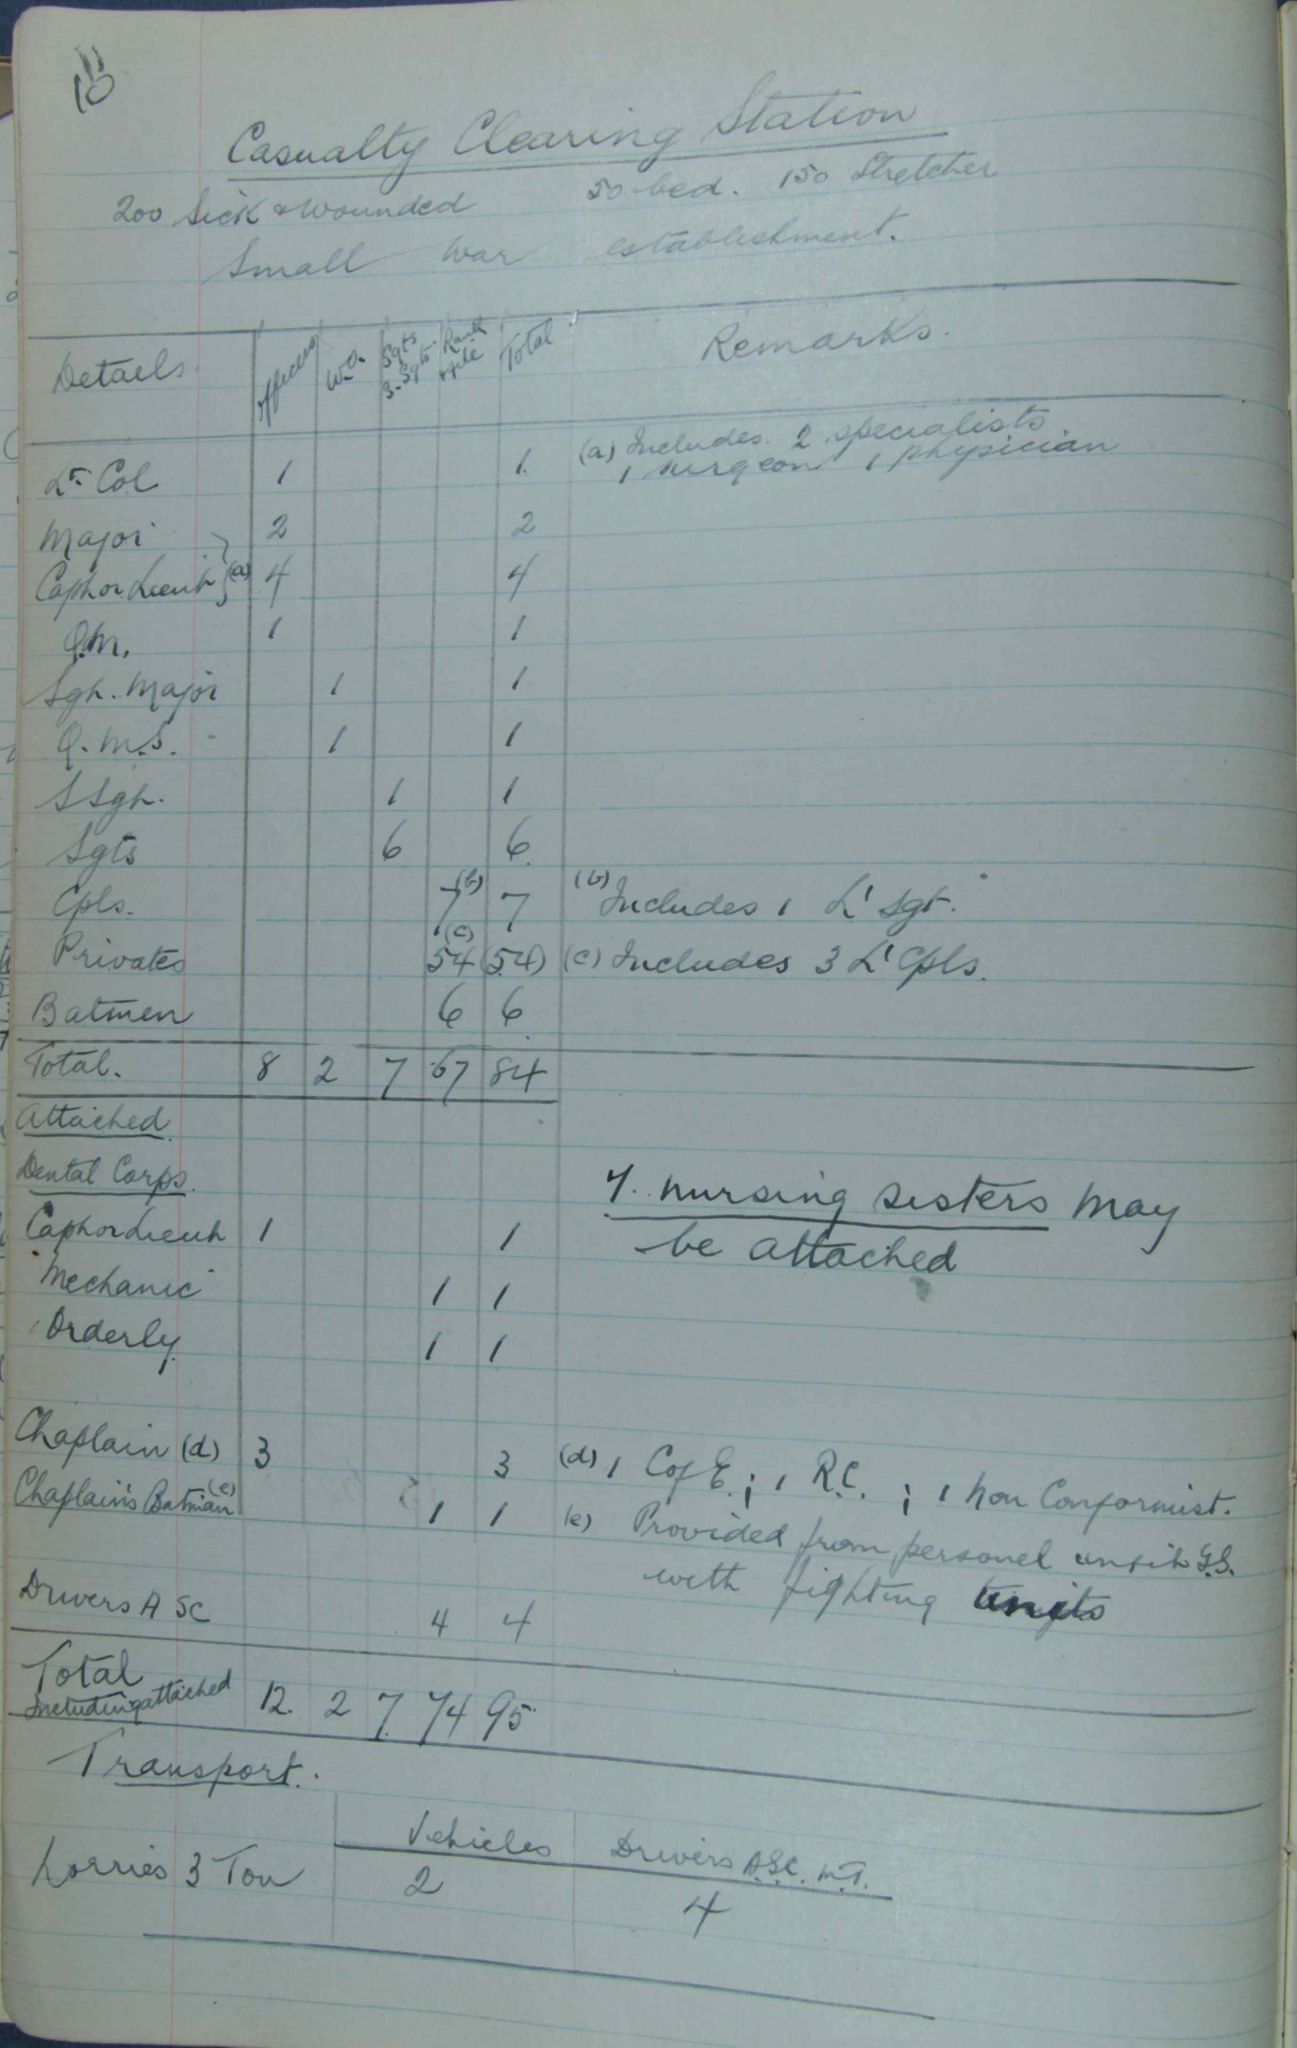 10
Casualty Clearing Station
200 Sick & wounded 50 bed. 150 Stretcher
Small War establishment.
Details officers W.O. Sgts S-Sgts. Rank & file Total Remarks.
Lt Col 1 1. (a) Includes. 2 specialists
1 surgeon 1 physician
Major 2 2
Capt or Lieut (a) 4 4
Q.M. 1 1
Sgt. Major 1 1
Q.M.S. 1 1
S Sgt. 1 1
Sgts 6 6.
Cpls. 7(b) 7 (b) Includes 1 L' Sgt.
Privates (c) 54 (54) (c) Includes 3 L' Cpls.
Batmen 6 6
Total. 8 2 7 67 84
Attached
Dental Corps.
7. nursing sisters may
Capt or Lieut 1 1 be attached
Mechanic 1 1
Orderly. 1 1
Chaplain (d) 3 3 (d) 1 C of E. ; 1 R.C. ; 1 Non Conformist.
Chaplain's Batman (e) 1 1 (e) Provided from personel unfit G.S.
with fighting units
Drivers A SC 4 4
Total
Including attached 12. 2 7. 74 95
Transport.
Vehicles Drivers A.S.C. M.T.
Lorries 3 Ton 2 4